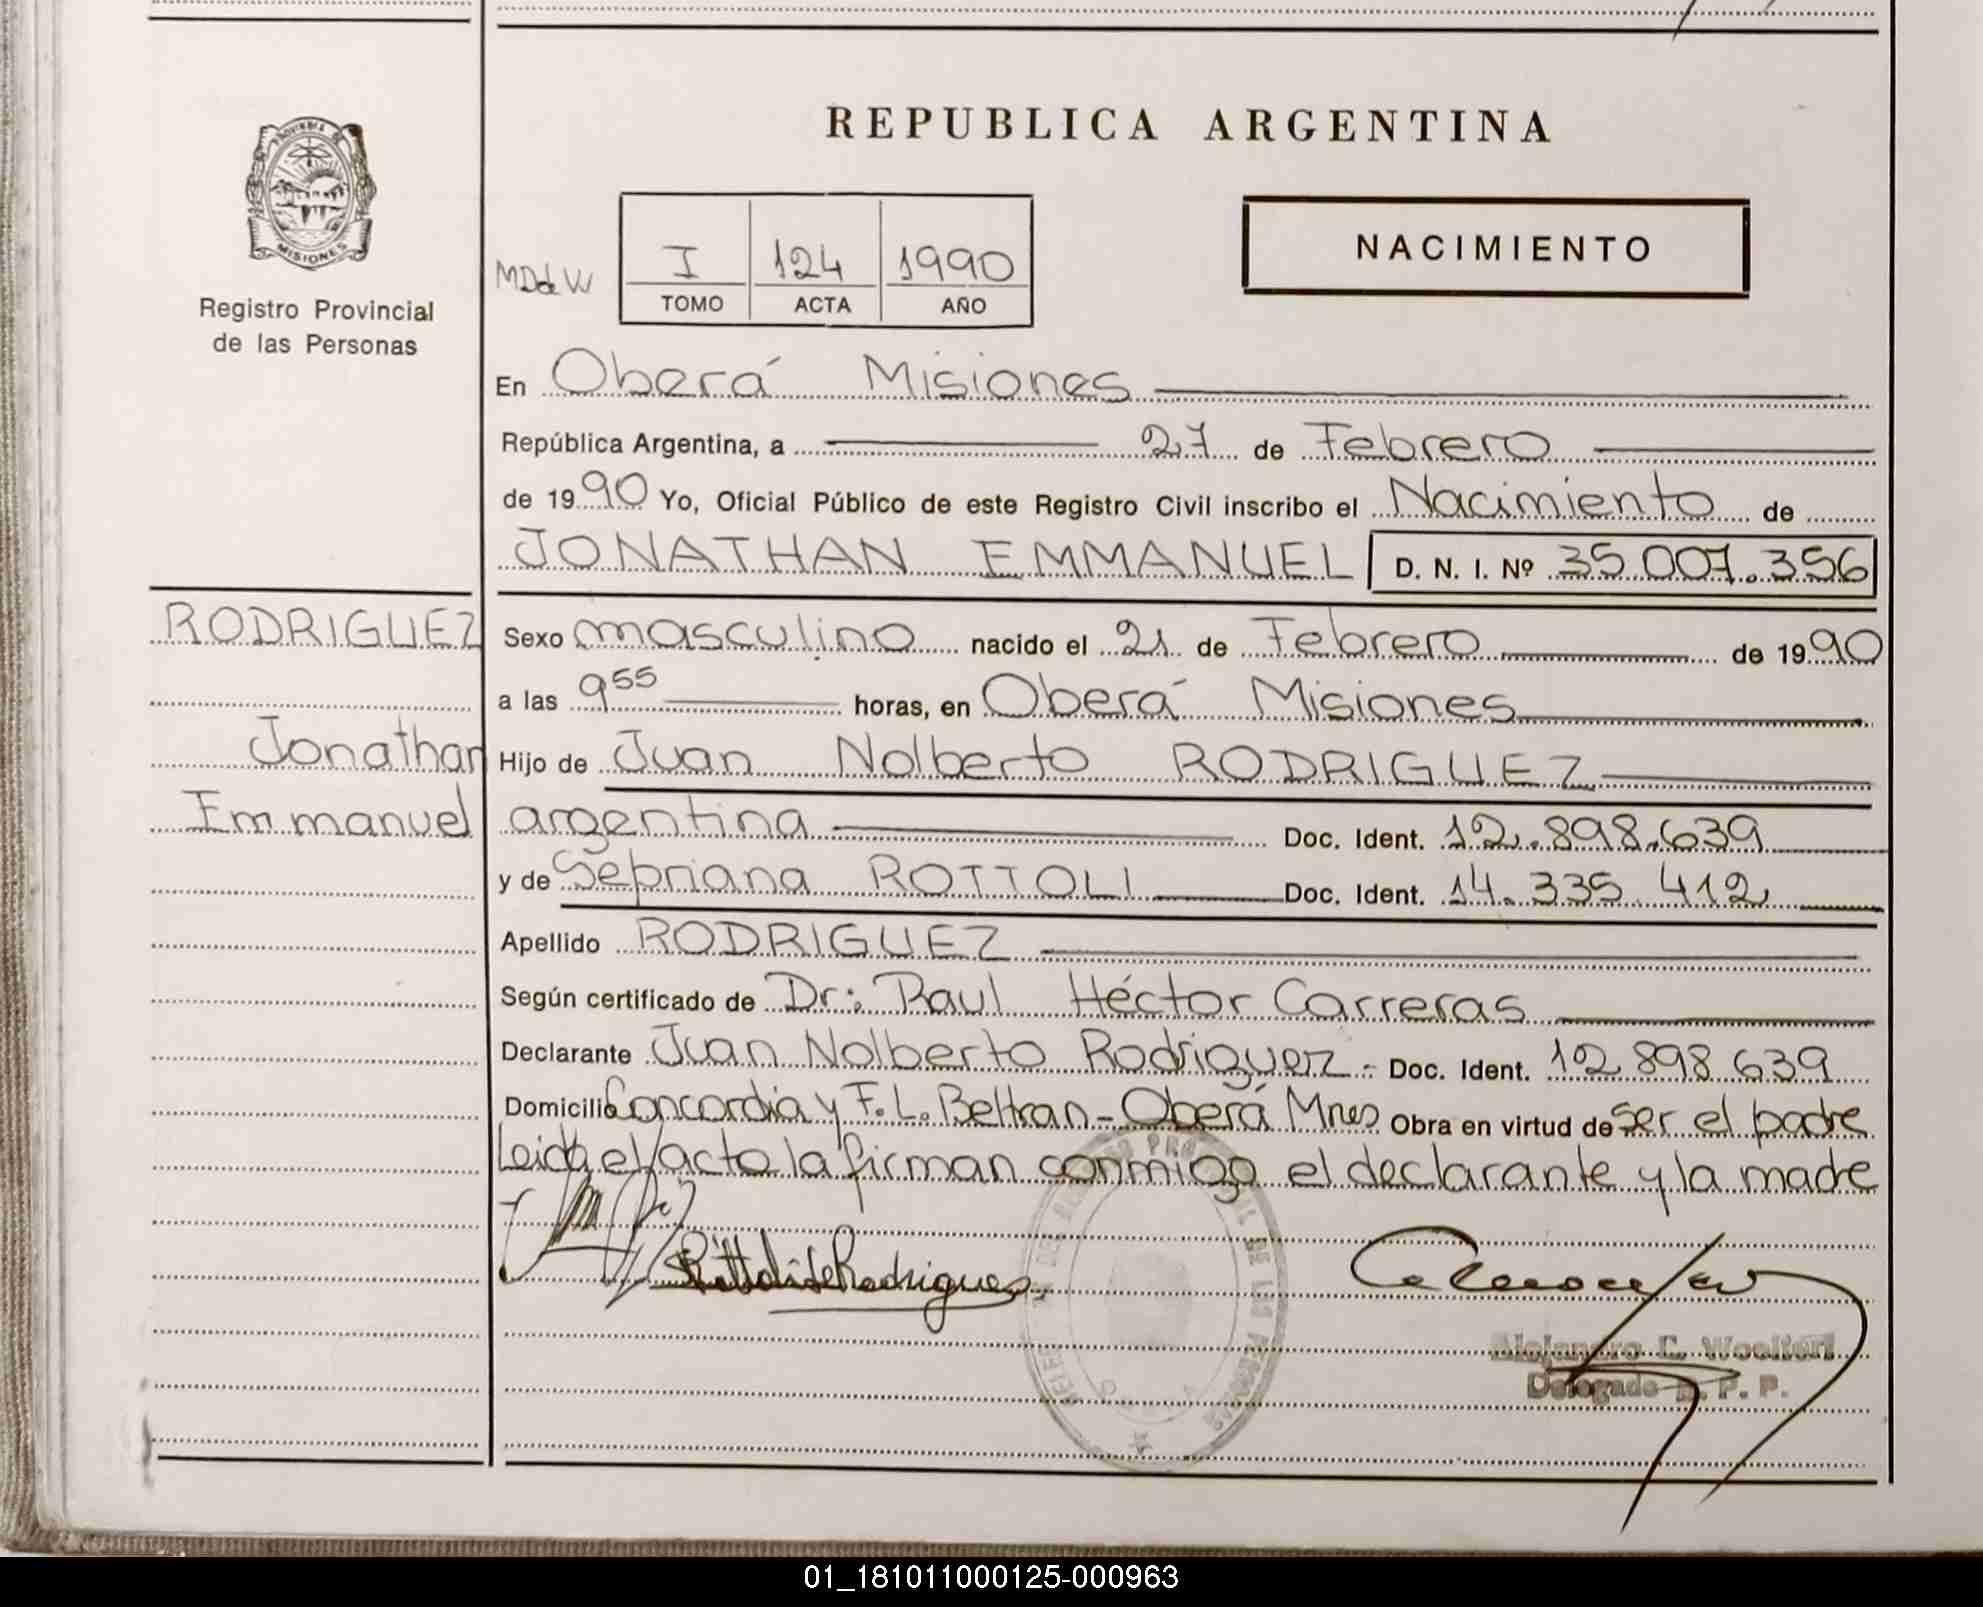 REPUBLICA ARGENTINA
PROVINCIA DE
MISIONES
Registro Provincial
de las Personas
NACIMIENTO
MD de W
I 124 1990
TOMO ACTA AÑO
En Oberá Misiones
República Argentina, a 27 de Febrero
de 1990 Yo, Oficial Público de este Registro Civil inscribo el Nacimiento de
JONATHAN EMMANUEL D. N. I. Nº 35.007.356
RODRIGUEZ
Jonathan
Emmanuel
Sexo masculino nacido el 21 de Febrero de 1990
a las 9 55 horas, en Oberá Misiones
Hijo de Juan Nolberto RODRIGUEZ
argentina Doc. Ident. 12.898.639
y de Sepriana ROTTOLI Doc. Ident. 14.335.412
Apellido RODRIGUEZ
Según certificado de Dr: Raul Héctor Carreras
Declarante Juan Nolberto Rodriguez.- Doc. Ident. 12 898 639
Domicilio Concordia y F. L. Beltran - Oberá Mnes Obra en virtud de ser el padre
Leida el acto la firman conmigo el declarante y la madre
de Rodrigues
DE LAS PERSONAS
Alejandro
Delegado R. P. P.
01_181011000125-000963